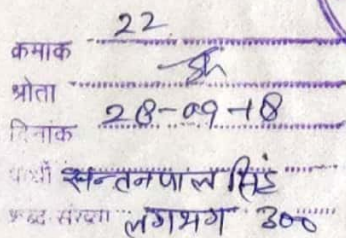 क्रमांक 22
श्रोता
दिनांक 28-09-18
प्रार्थी सन्तनपाल सिंह
शब्द संख्या लगभग 300